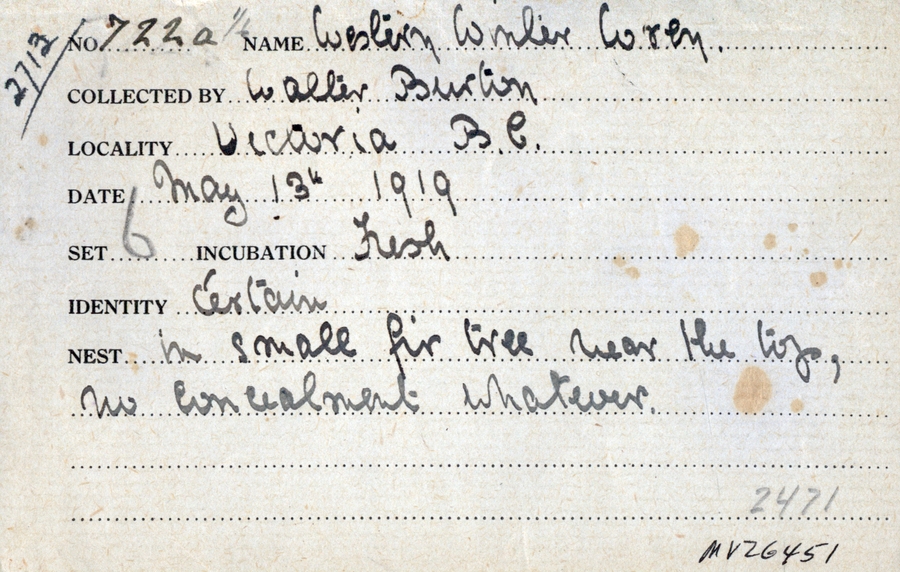 2/13
NO. 722a 1/6 NAME Western Winter Wren.
COLLECTED BY Walter Burton
LOCALITY Victoria B.C.
DATE May 13th 1919
SET 6 INCUBATION Fresh
IDENTITY Certain
NEST in small fir tree near the top,
no concealment whatever.
2471
MVZ6451